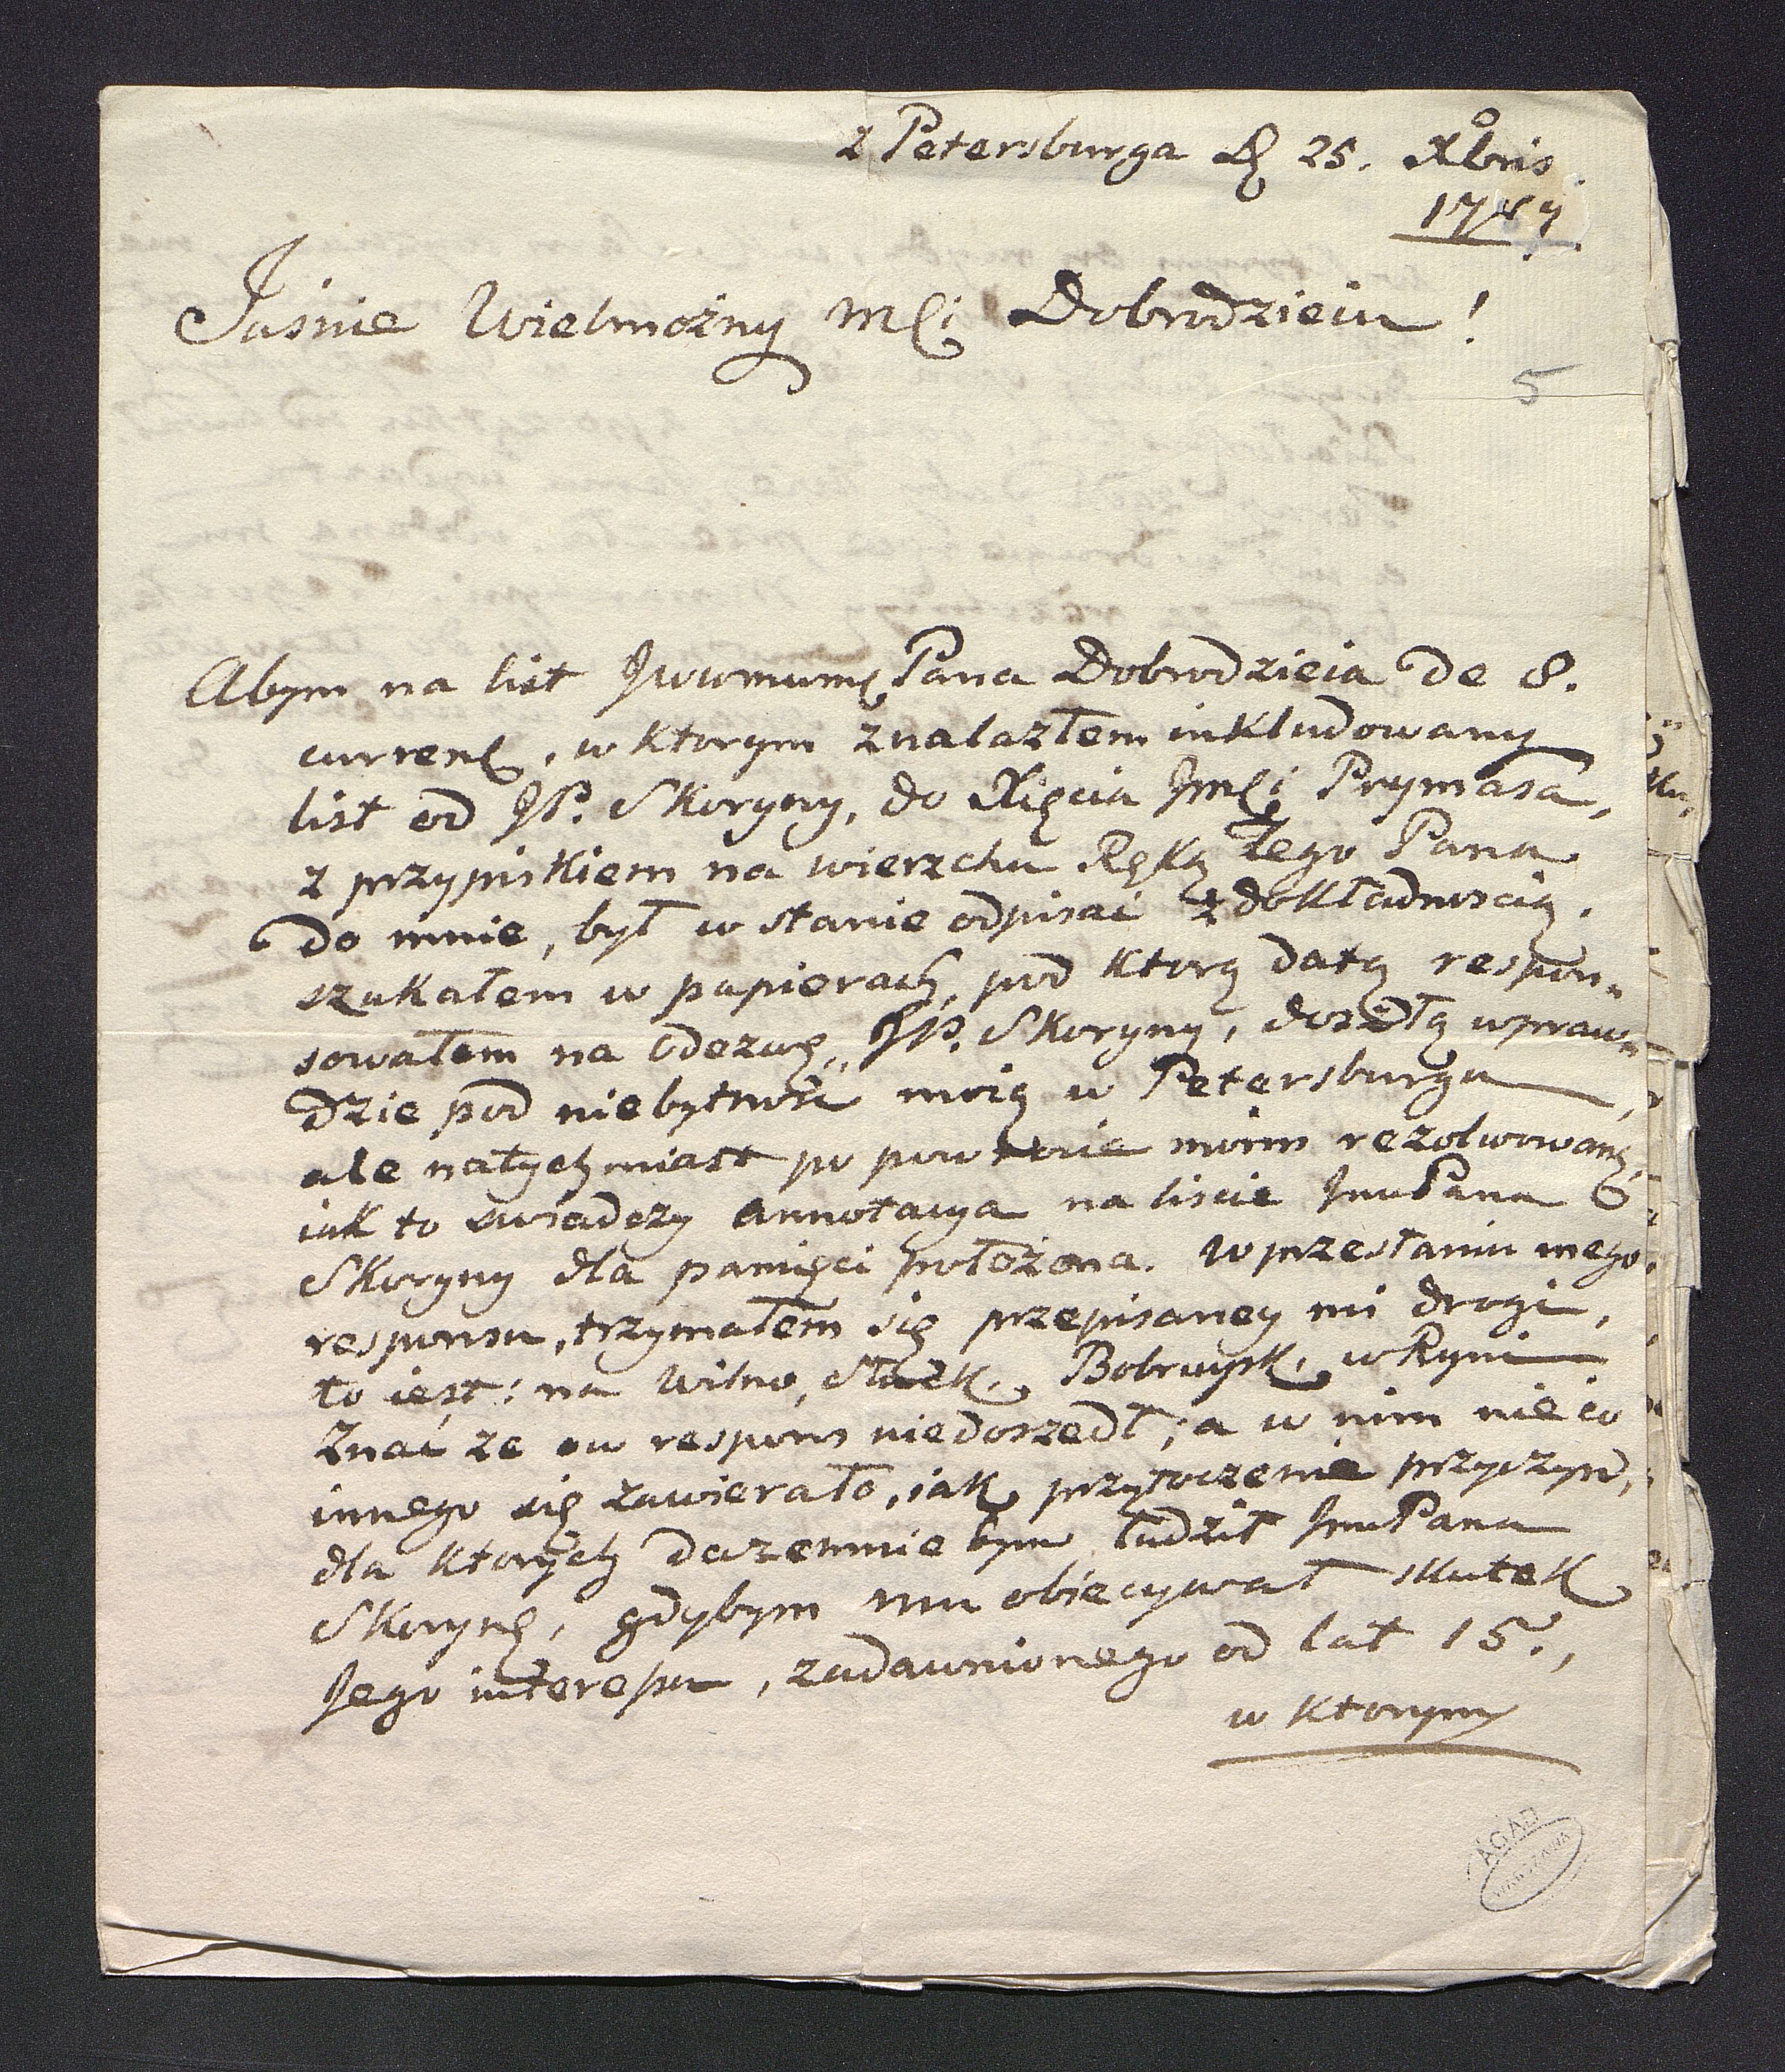 z Petersburga d 25. Xbris
1787.
Jaśnie Wielmożny Mći Dobrodzieiu!
5
Abym na list Jwwmume Pana Dobrodzieia de 8.
curren, w ktorym znalazłem inkludowany
list od JP. Skoryny, do Xięcia Jmći Prymasa,
z przypiskiem na wierzchu Ręką Tego Pana
do mnie, był w stanie odpisać z dokładnoscią,
szukałem w papierach, pod ktorą datą respon„
sowałem na odezwę JP. Skoryny, doszłą wpraw„
dzie pod niebytność moią w Petersburgu,
ale natychmiast po powrocie moim rezolwowaną,
iak to swiadczy annotacya na liscie JmuPana
Skoryny dla pamięci położona. W przesłaniu mego
responsu, trzymałem się przepisaney mi drogi,
to iest: na Wilno, Słuck, Bobruysk, w Rymi
Znać że ów respons niedoszedł; a w nim nie co
innego się zawierało, iak przytoczenie przyczyn,
dla ktorych daremnie bym łudził JmuPana
Skorynę, gdybym mu obiecywał skutek
Jego interessu, zadawnionego od lat 15.,
w ktorym
AGAD
WARSZAWA